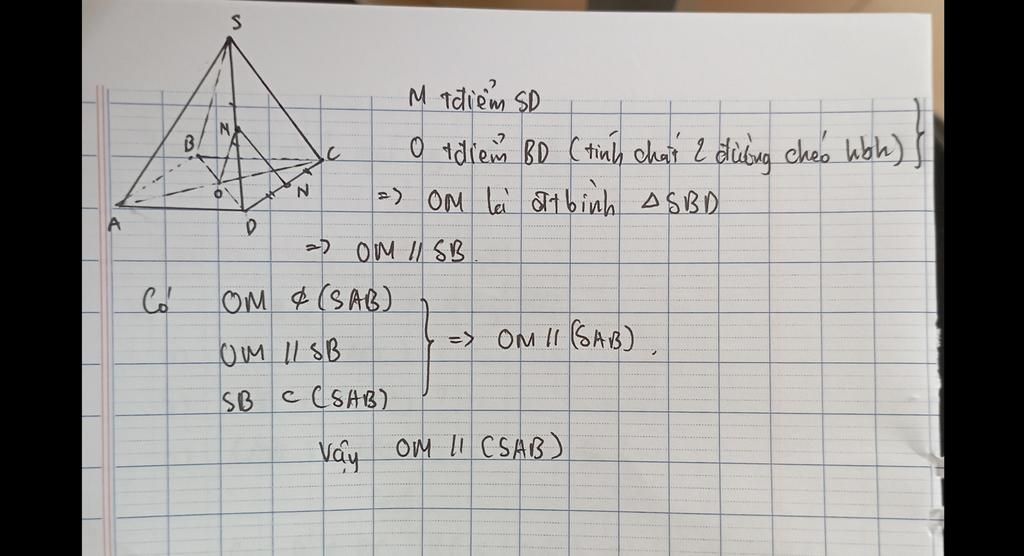 S
M tđiểm SD
O tđiểm BD (tính chất 2 đường chéo hbh)
=> OM là đtbình △SBD
=> OM // SB.
B
M
C
O
N
A
D
Có OM ⊄ (SAB)
OM // SB
SB ⊂ (SAB)
=> OM // (SAB).
Vậy OM // (SAB)